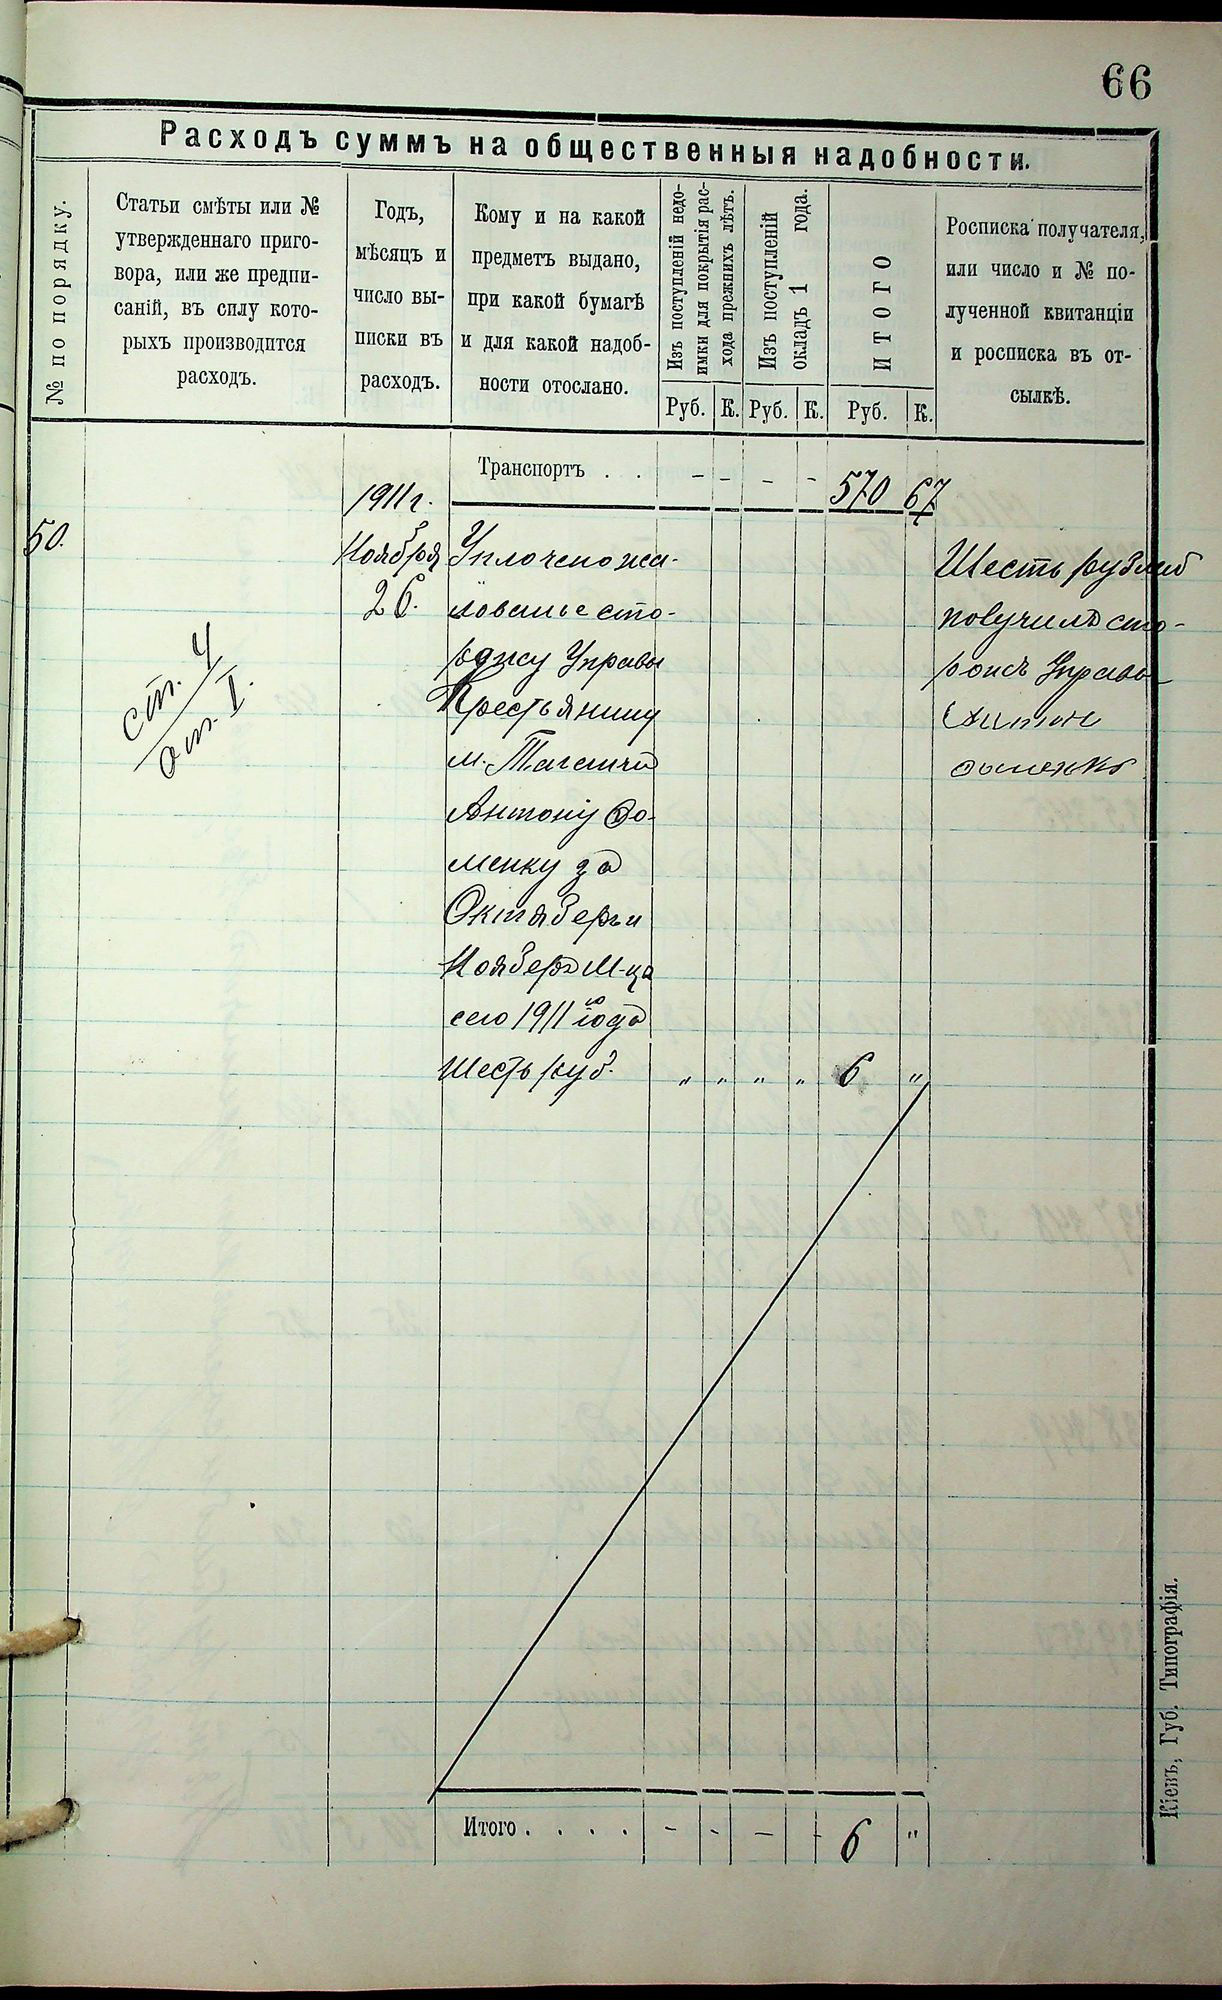 66
Расходъ суммъ на общественныя надобности.
№ по порядку.
Статьи смѣты или №
утвержденнаго приго-
вора, или же предпи-
саній, въ силу кото-
рыхъ производится
расходъ.
Годъ,
мѣсяцъ и
число вы-
писки въ
расходъ.
Кому и на какой
предметъ выдано,
при какой бумагѣ
и для какой надоб-
ности отослано.
Изъ поступленій недо-
имки для покрытія рас-
хода прежнихъ лѣтъ.
Изъ поступленій
окладъ 1 года.
ИТОГО
Росписка получателя,
или число и № по-
лученной квитанціи
и росписка въ от-
сылкѣ.
Руб. К. Руб. К. Руб. К.
Транспортъ . . - - - - 570 67
1911 г.
50.
Ноября
26.
ст. 4
от. I.
Уплочено жа-
лованье сто-
рожу Управы
Крестьянину
м. Таганчи
Антону До-
менку за
Октяберь и
Нояберь М-ца
сего 1911 го года
Шесть руб. „ „ „ „ 6 „
Шесть рублей
получилъ сто-
рожъ Управы
Антонъ
Итого . . . . - - - - 6 „
Кіевъ, Губ. Типографія.